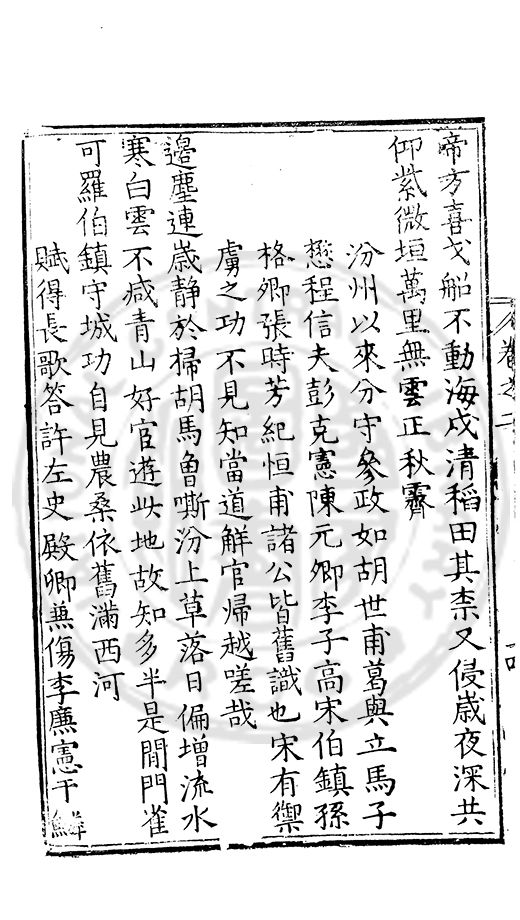 啼方喜戈船不動海戍清稻田其柰又侵歲夜深共
仰紫微垣萬里無雲正秋霽
汾州以來分守參政如胡世甫葛與立馬子
懋程信夫彭克憲陳元卿李子高宋伯鎮孫
格卿張時芳紀恒甫諸公皆舊識也宋有禦
虜之功不見知當道觧官帰越嗟哉
邉塵連歲静於掃胡馬魯嘶汾上草落日偏增流水
寒白雲不减青山好官遊此地故知多半是閒門雀
可羅伯鎮守城功自見農桑依舊滿西河
賦得長歌答許左史殿卿兼傷李廉憲于鱗
卷之二